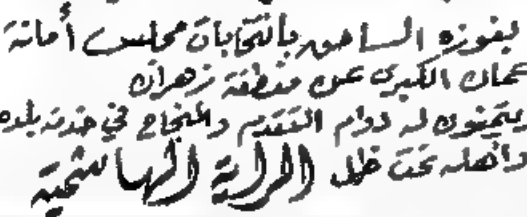 بفوزه الساحق بانتخابات مجلس أمانة
عمان الكبرى عن منطقة زهران
ويتمنون له دوام التقدم والنجاح في خدمة بلده
وأهله تحت ظل الراية الهاشمية